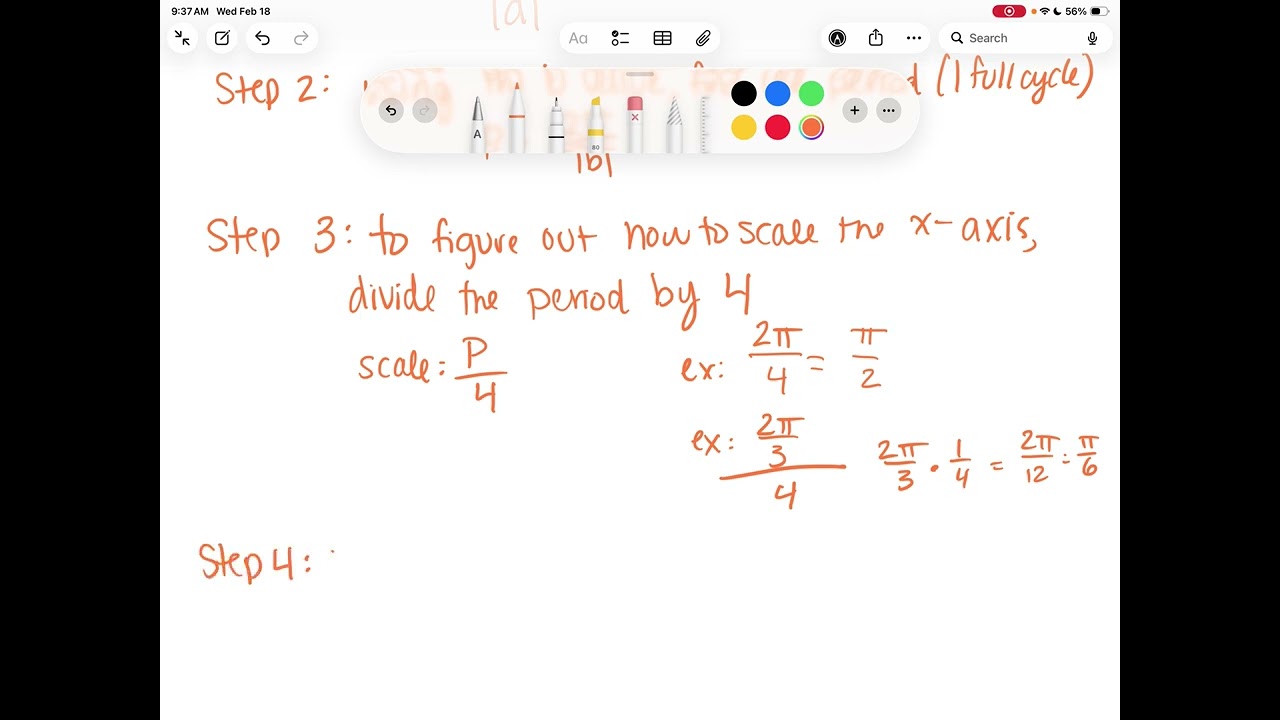 9:37 AM Wed Feb 18
56%
Aa
Search
|a|
Step 2: period (1 full cycle)
A
80
|b|
Step 3: to figure out how to scale the x-axis,
divide the period by 4
scale: P/4
ex: 2π/4 = π/2
ex: 2π/3 / 4 2π/3 · 1/4 = 2π/12 = π/6
Step 4: